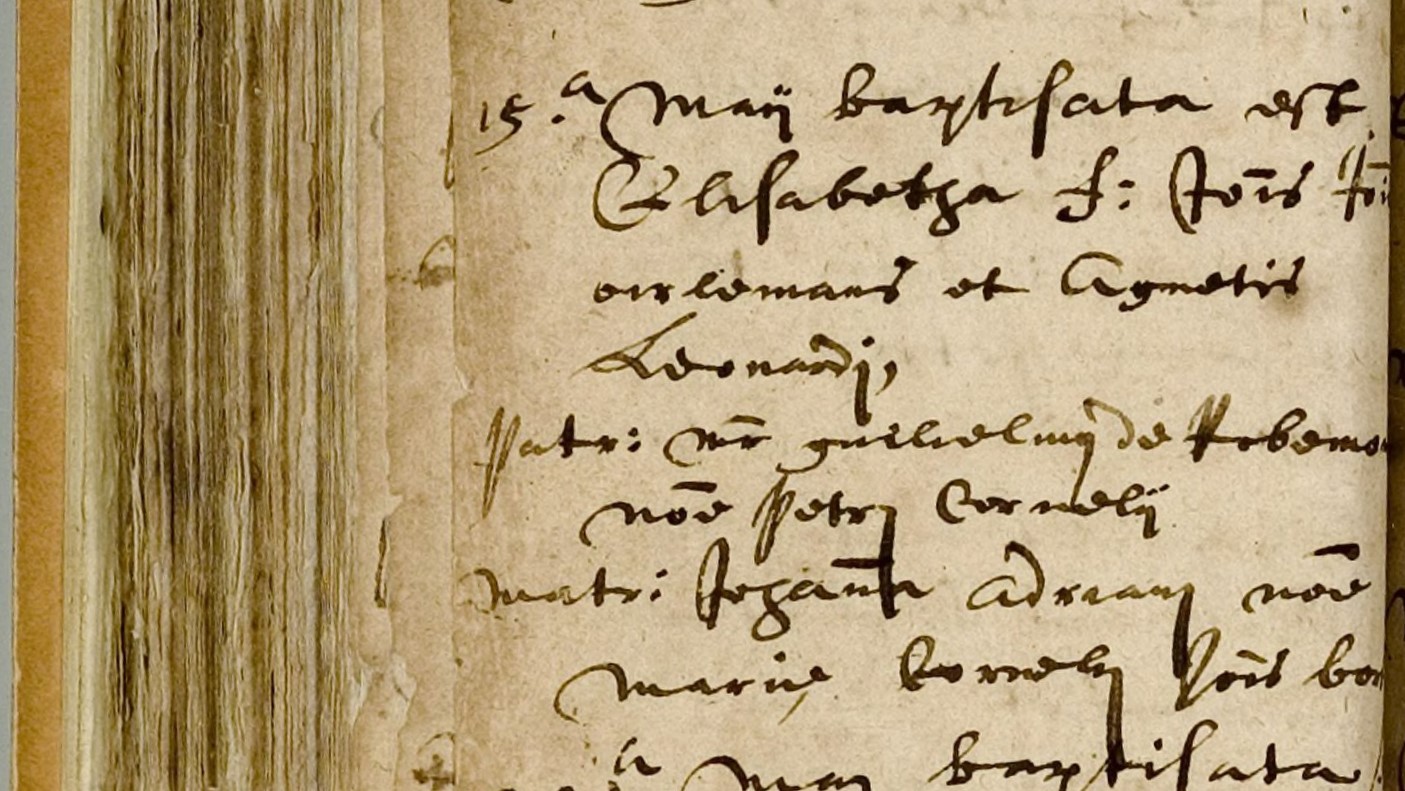 15.a Maij baptisata est
Elisabetha f: Jōis Jōi
oirlemans et Agnetis
Leonardj,
Patr: mr guilielmj de Robemo
nōe Petrj Cornelij
Matr: Johanna Adrianj nōe
Marie Cornelj Jōis bor
a Maij baptisata